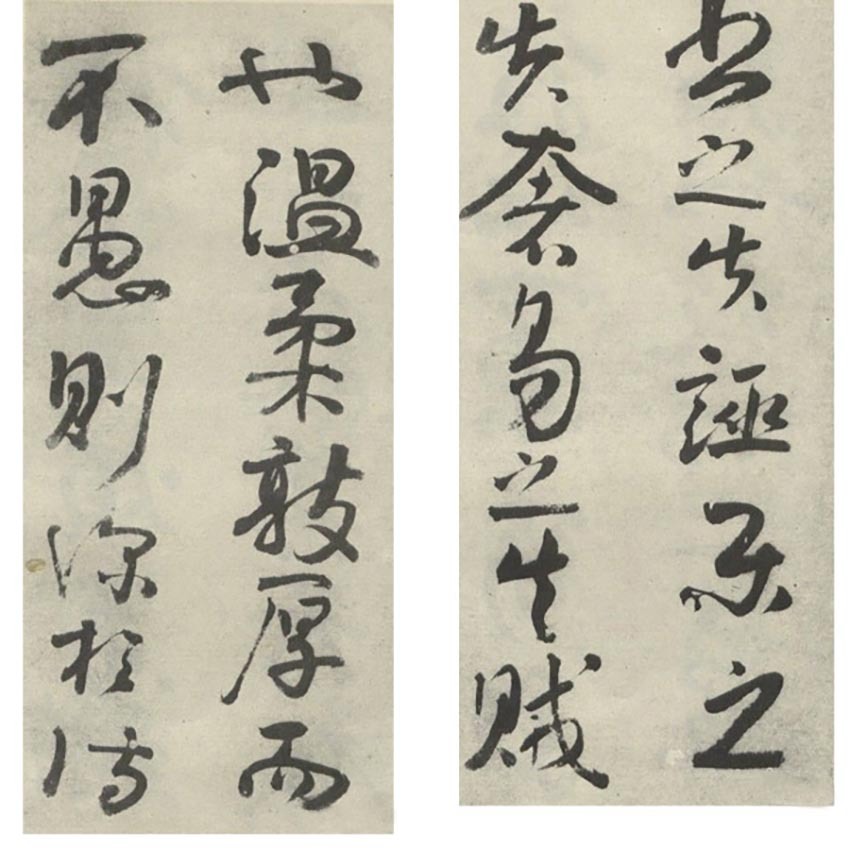 書之失誣樂之
失奢易之失賊
也温柔敦厚而
不愚則深於詩